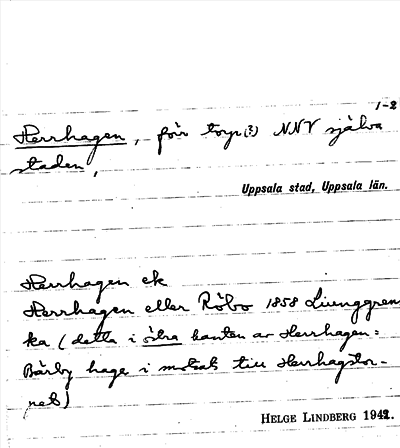 1-2
Herrhagen, förr torp(?) NNV själva
staden,
Uppsala stad, Uppsala län.
Herrhagen ek
Herrhagen eller Röbo 1858 Ljunggren
ka (detta i östra kanten av Herrhagen:
Bärby hage i motsats till Herrhagstor-
pet)
HELGE LINDBERG 1942.